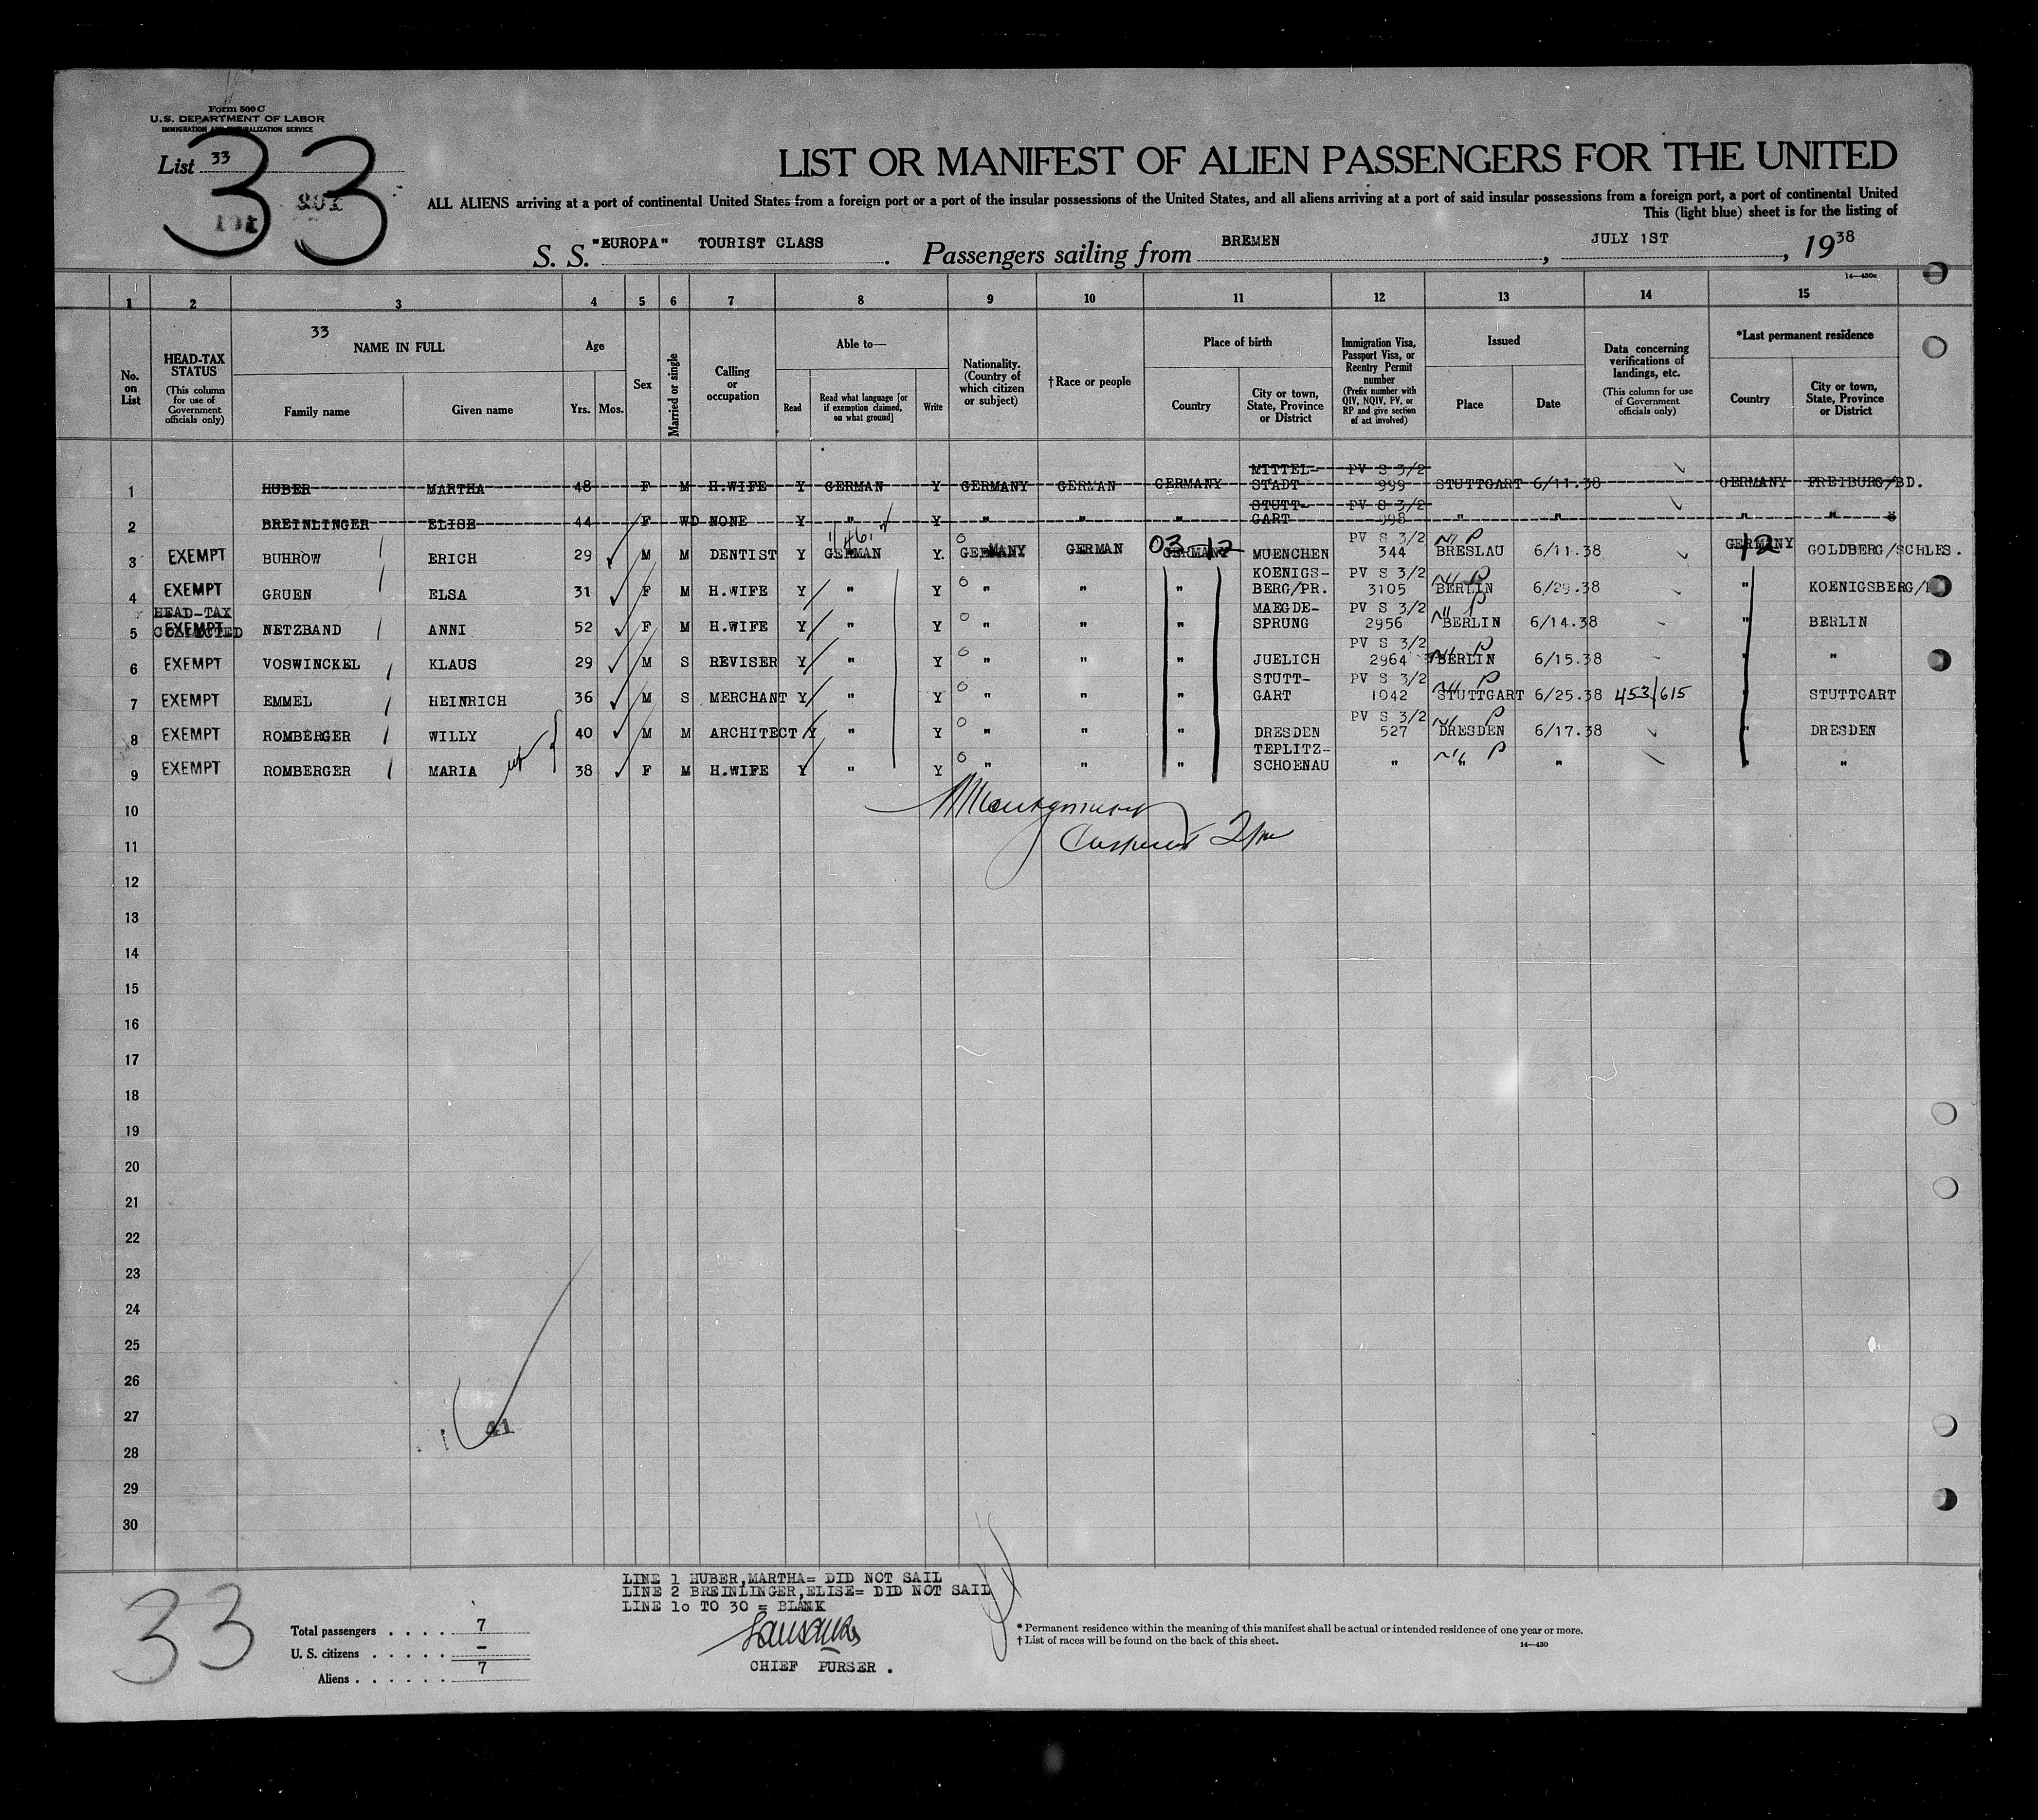 Form 500 C
U.S. DEPARTMENT OF LABOR
IMMIGRATION AND NATURALIZATION SERVICE
List 33
33
LIST OR MANIFEST OF ALIEN PASSENGERS FOR THE UNITED
ALL ALIENS arriving at a port of continental United States from a foreign port or a port of the insular possessions of the United States, and all aliens arriving at a port of said insular possessions from a foreign port, a port of continental United
This (light blue) sheet is for the listing of
S. S. "EUROPA" TOURIST CLASS. Passengers sailing from BREMEN, JULY 1ST, 1938
14—430a
1 2 3 4 5 6 7 8 9 10 11 12 13 14 15
No. on List
HEAD-TAX STATUS (This column for use of Government officials only)
33
NAME IN FULL
Family name Given name
Age
Yrs. Mos.
Sex
Married or single
Calling or occupation
Able to—
Read
Read what language [or if exemption claimed, on what ground]
Write
Nationality. (Country of which citizen or subject)
†Race or people
Place of birth
Country
City or town, State, Province or District
Immigration Visa, Passport Visa, or Reentry Permit number (Prefix number with QIV, NQIV, PV, or RP and give section of act involved)
Issued
Place Date
Data concerning verifications of landings, etc. (This column for use of Government officials only)
*Last permanent residence
Country
City or town, State, Province or District
1 HUBER MARTHA 48 F M H.WIFE Y GERMAN Y GERMANY GERMAN GERMANY MITTEL-STADT PV S 3/2 999 STUTTGART 6/11.38 GERMANY FREIBURG/BD.
2 BREINLINGER ELISE 44 F WD NONE Y " Y " " " STUTT-GART PV S 3/2 998 " " " "
3 EXEMPT BUHROW ERICH 29 M M DENTIST Y GERMAN Y. GERMANY GERMAN GERMANY 03 12 MUENCHEN PV S 3/2 344 BRESLAU 6/11.38 GERMANY 12 GOLDBERG/SCHLES.
4 EXEMPT GRUEN ELSA 31 F M H.WIFE Y " Y " " " KOENIGS-BERG/PR. PV S 3/2 3105 BERLIN 6/29.38 " KOENIGSBERG/
HEAD-TAX COLLECTED
5 EXEMPT NETZBAND ANNI 52 F M H.WIFE Y " Y " " " MAEGDE-SPRUNG PV S 3/2 2956 BERLIN 6/14.38 " BERLIN
6 EXEMPT VOSWINCKEL KLAUS 29 M S REVISER Y " Y " " " JUELICH PV S 3/2 2964 BERLIN 6/15.38 "
7 EXEMPT EMMEL HEINRICH 36 M S MERCHANT Y " Y " " " STUTT-GART PV S 3/2 1042 STUTTGART 6/25.38 453/615 " STUTTGART
8 EXEMPT ROMBERGER WILLY 40 M M ARCHITECT Y " Y " " " DRESDEN PV S 3/2 527 DRESDEN 6/17.38 " DRESDEN
9 EXEMPT ROMBERGER MARIA 38 F M H.WIFE Y " Y " " " TEPLITZ-SCHOENAU " " " " "
10
11
12
13
14
15
16
17
18
19
20
21
22
23
24
25
26
27
28
29
30
41
33
LINE 1 HUBER,MARTHA= DID NOT SAIL
LINE 2 BREINLINGER,ELISE= DID NOT SAIL
LINE 1o TO 30 = BLANK
CHIEF PURSER .
Total passengers . . . . 7
U. S. citizens . . . . . —
Aliens . . . . . . 7
* Permanent residence within the meaning of this manifest shall be actual or intended residence of one year or more.
† List of races will be found on the back of this sheet.
14—430